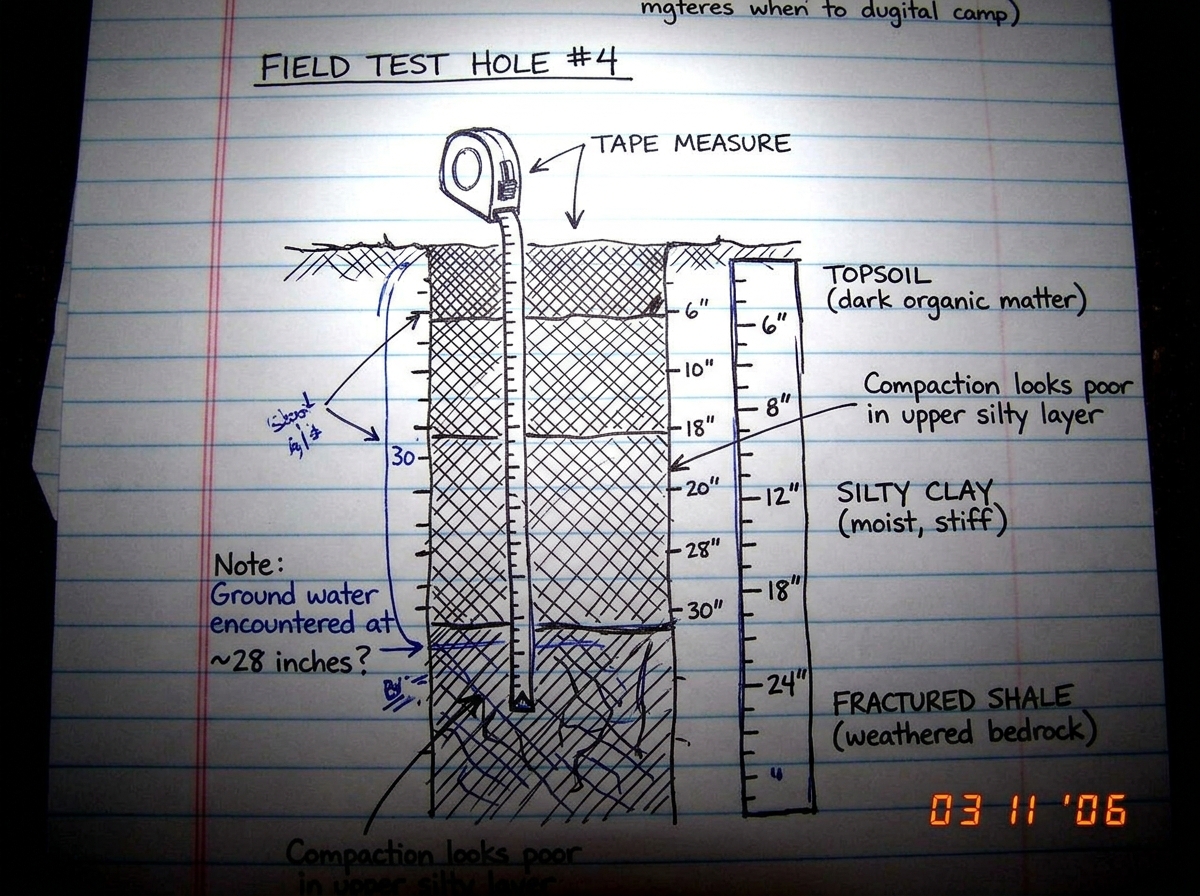 mgteres when to dugital camp)
FIELD TEST HOLE #4
TAPE MEASURE
TOPSOIL
(dark organic matter)
6"
10"
18"
20"
28"
30"
6"
8"
12"
18"
24"
30
Compaction looks poor
in upper silty layer
SILTY CLAY
(moist, stiff)
Note:
Ground water
encountered at
~28 inches?
FRACTURED SHALE
(weathered bedrock)
03 11 '06
Compaction looks poor
in upper silty layer